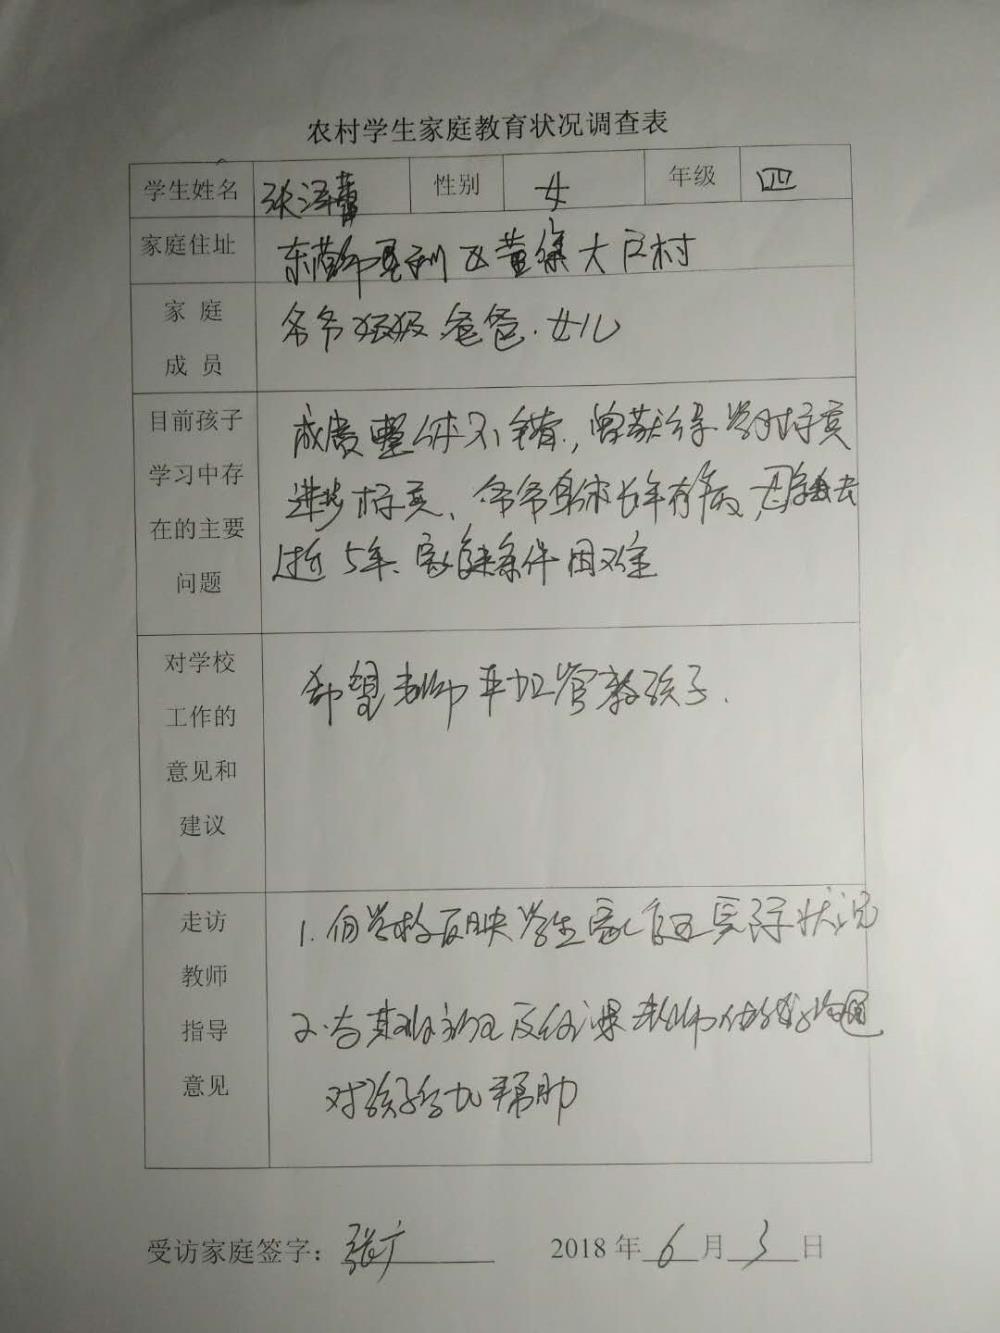 农村学生家庭教育状况调查表
学生姓名 张泽蕾 性别 女 年级 四
家庭住址 东营市垦利区黄 大 村
家庭
成员
爷爷 奶奶 爸爸. 女儿
目前孩子
学习中存
在的主要
问题
成度整体不错, 曾获得学习标兵
进步标兵、爷爷身体长年有病, 母亲去
逝5年、家庭条件困难
对学校
工作的
意见和
建议
希望老师严加管教孩子.
走访
教师
指导
意见
1. 向学校反映学生家庭实际状况
2. 与其班主任及任课老师做好沟通
对孩子多加帮助
受访家庭签字: 张广 2018年 6 月 3 日